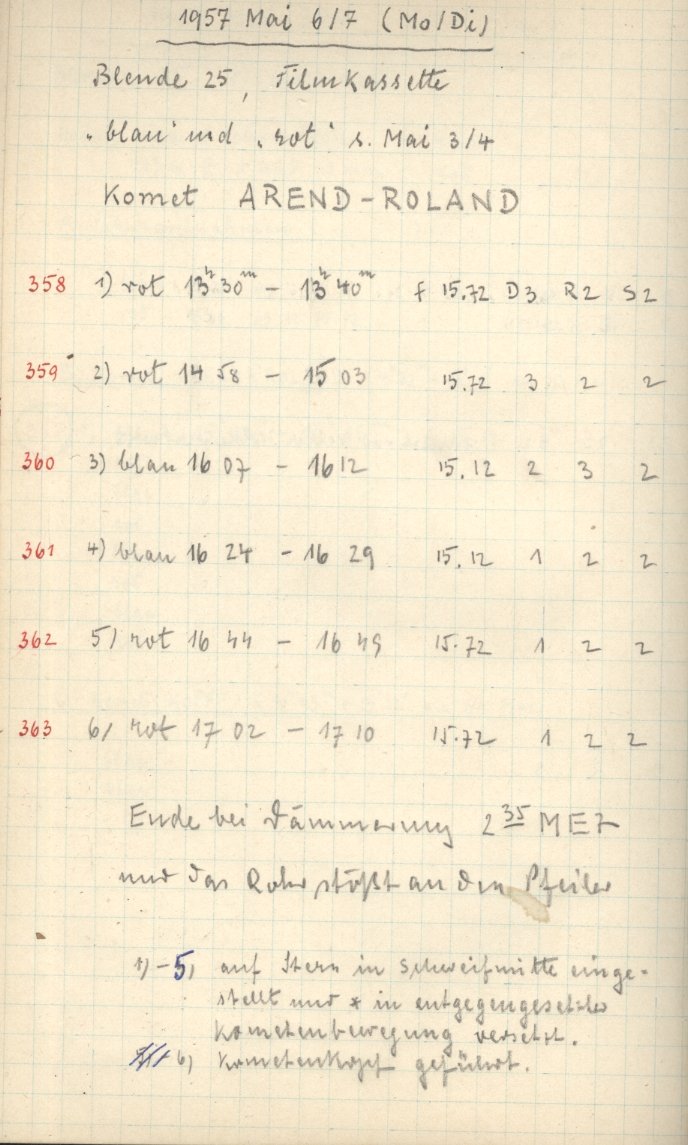 1957 Mai 6/7 (Mo/Di)
Blende 25, Filmkassette
„blau“ und „rot“ s. Mai 3/4
Komet AREND-ROLAND
358 1) rot 13h 30m - 13h 40m f 15.72 D3 R2 S2
359 2) rot 14 58 - 15 03 15.72 3 2 2
360 3) blau 16 07 - 16 12 15.12 2 3 2
361 4) blau 16 24 - 16 29 15.12 1 2 2
362 5) rot 16 44 - 16 49 15.72 1 2 2
363 6) rot 17 02 - 17 10 15.72 1 2 2
Ende bei Dämmerung 2 35 MEZ
und das Rohr stößt an den Pfeiler
1) - 5) auf Stern in Schweifmitte einge-
stellt und * in entgegengesetzter
Kometenbewegung versetzt.
6) Kometenkopf geführt.